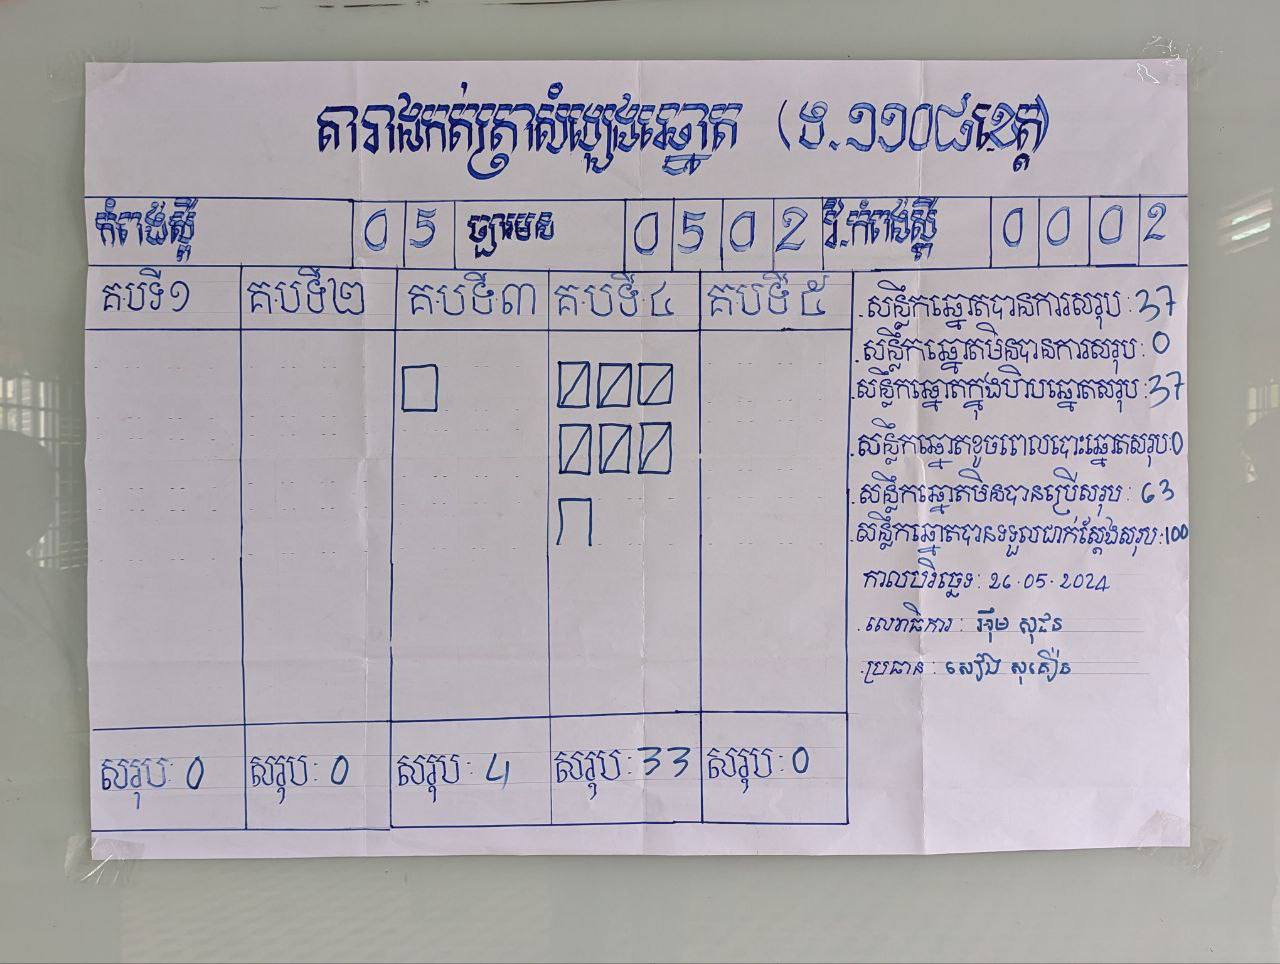 តារាងកត់ត្រាសំឡេងឆ្នោត (ង.១១០៨ខេត្ត)
កំពង់ស្ពឺ 0 5 ច្បារមន 0 5 0 2 រ.កំពង់ស្ពឺ 0 0 0 2
គ.បទី១ គ.បទី២ គ.បទី៣ គ.បទី៤ គ.បទី៥
.សន្លឹកឆ្នោតបានការសរុប: 37
.សន្លឹកឆ្នោតមិនបានការសរុប: 0
.សន្លឹកឆ្នោតក្នុងហិបឆ្នោតសរុប: 37
.សន្លឹកឆ្នោតខូចពេលបោះឆ្នោតសរុប: 0
.សន្លឹកឆ្នោតមិនបានប្រើសរុប: 63
.សន្លឹកឆ្នោតបានទទួលជាក់ស្ដែងសរុប: 100
កាលបរិច្ឆេទ: 26.05.2024
.លេខាធិការ: អ៊ឹម សុជន
.ប្រធាន: សៀង សុគឿន
សរុប: 0 សរុប: 0 សរុប: 4 សរុប: 33 សរុប: 0